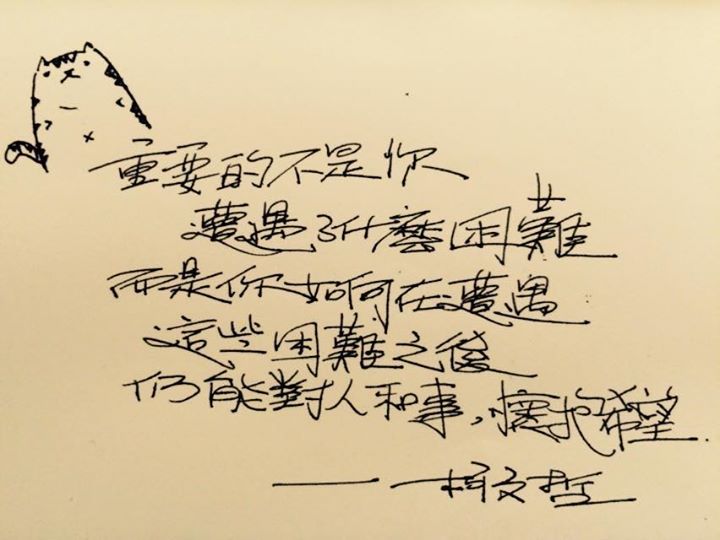 重要的不是你
遭遇了什麼困難
而是你如何在遭遇
這些困難之後
仍能對人和事，擁抱希望.
—— 柯文哲